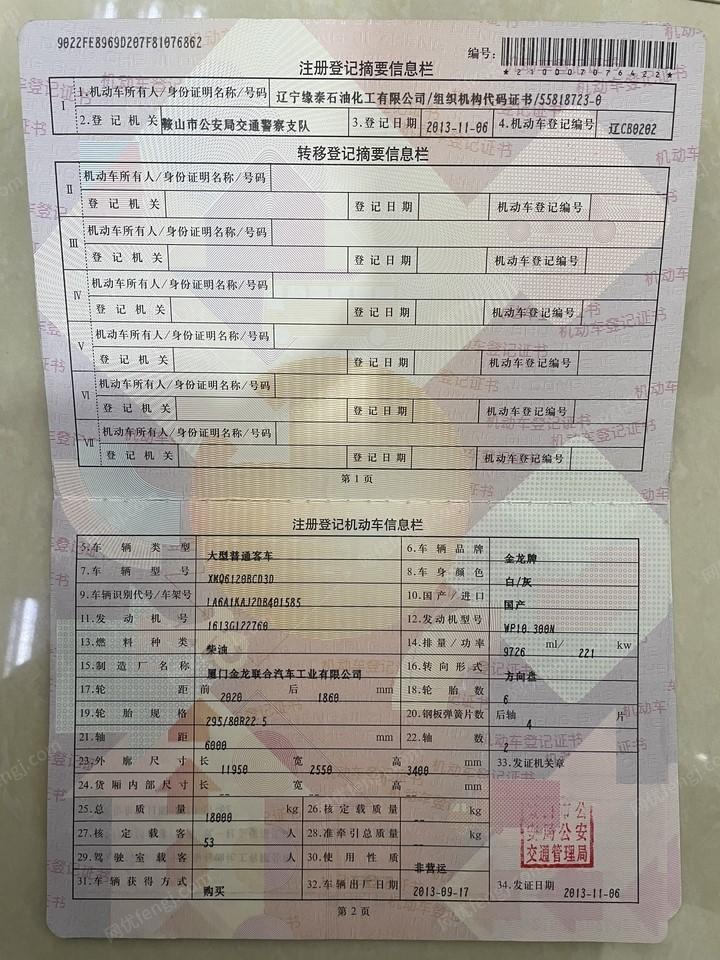 9022FE8969D207F81076862
编号:
★210007076422★
注册登记摘要信息栏
I 1.机动车所有人/身份证明名称/号码 辽宁缘泰石油化工有限公司/组织机构代码证书/55818723-0
2.登记机关 鞍山市公安局交通警察支队 3.登记日期 2013-11-06 4.机动车登记编号 辽CB0202
转移登记摘要信息栏
II 机动车所有人/身份证明名称/号码
登记机关 登记日期 机动车登记编号
III 机动车所有人/身份证明名称/号码
登记机关 登记日期 机动车登记编号
IV 机动车所有人/身份证明名称/号码
登记机关 登记日期 机动车登记编号
V 机动车所有人/身份证明名称/号码
登记机关 登记日期 机动车登记编号
VI 机动车所有人/身份证明名称/号码
登记机关 登记日期 机动车登记编号
VII 机动车所有人/身份证明名称/号码
登记机关 登记日期 机动车登记编号
第1页
注册登记机动车信息栏
5.车辆类型 大型普通客车 6.车辆品牌 金龙牌
7.车辆型号 XMQ6120BCD3D 8.车身颜色 白/灰
9.车辆识别代号/车架号 LA6A1KAJ2DB401585 10.国产/进口 国产
11.发动机号 1613G122760 12.发动机型号 WP10.300N
13.燃料种类 柴油 14.排量/功率 9726 ml/ 221 kw
15.制造厂名称 厦门金龙联合汽车工业有限公司 16.转向形式 方向盘
17.轮距 前 2020 后 1860 mm 18.轮胎数 6
19.轮胎规格 295/80R22.5 20.钢板弹簧片数 后轴 4 片
21.轴距 6000 mm 22.轴数 2
23.外廓尺寸 长 11950 宽 2550 高 3400 mm 33.发证机关章
24.货厢内部尺寸 长 -- 宽 -- 高 -- mm
25.总质量 18000 kg 26.核定载质量 -- kg
27.核定载客 53 人 28.准牵引总质量 -- kg
29.驾驶室载客 -- 人 30.使用性质 非营运
31.车辆获得方式 购买 32.车辆出厂日期 2013-09-17 34.发证日期 2013-11-06
安局公安
交通管理局
第2页